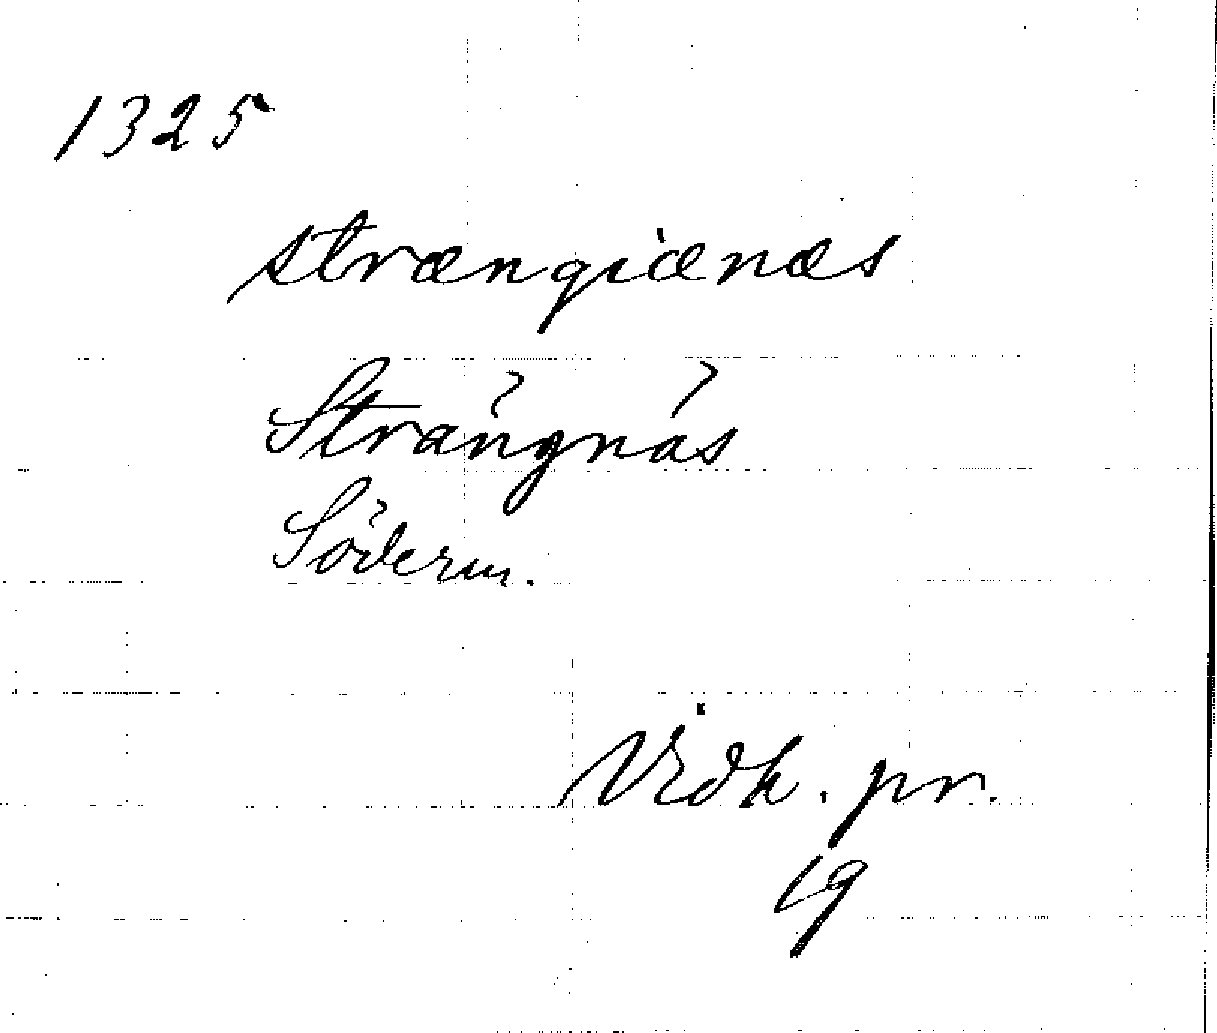 1325
strængiænæs
Strängnäs
Söderm.
Vidh. pr.
19